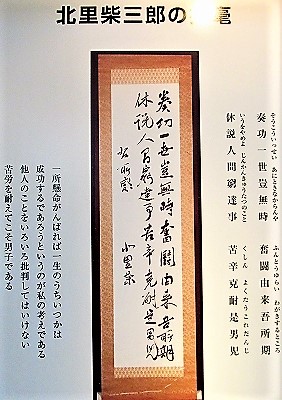 北里柴三郎の毫
そうこういっせい あにときなからんや ふんとうゆらい わがきするところ
奏功一世豈無時 奮闘由来吾所期
いうをやめよ じんかんきゅうたつのこと くしん よくたうこれだんじ
休説人間窮達事 苦辛克耐是男児
奏功一世豈無時奮闘由来吾所期
休説人間窮達事苦辛克耐是男児
北里柴
一所懸命がんばれば一生のうちいつかは
成功するであろうというのが私の考えである
他人のことをいろいろ批判してはいけない
苦労を耐えてこそ男子である